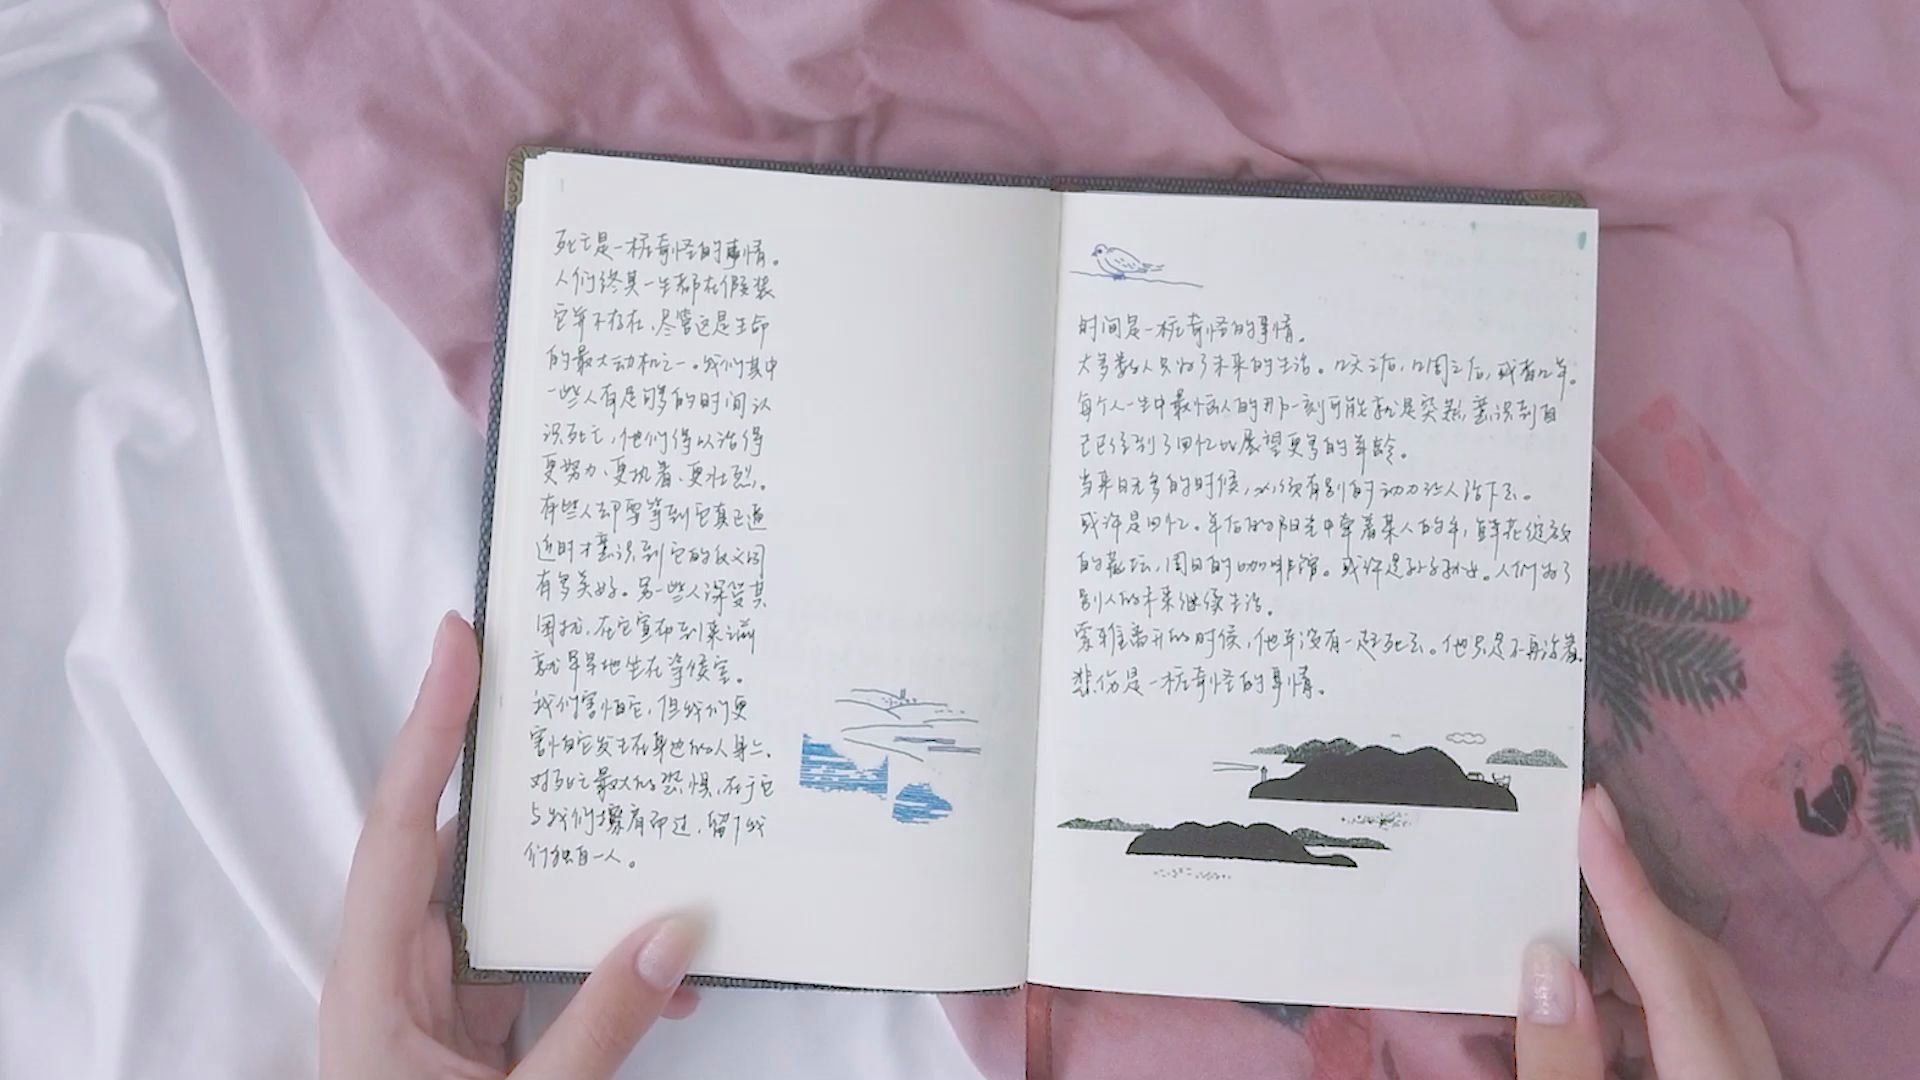 死亡是一桩奇怪的事情。
人们终其一生都在假装
它并不存在，尽管这是生命
的最大动机之一。我们其中
一些人有足够的时间认
识死亡，他们得以活得
更努力、更执着、更壮烈。
有些人却要等到它真正逼
近时才意识到它的反义词
有多美好。另一些人深受其
困扰，在它宣布到来之前
就早早地坐在等候室。
我们害怕它，但我们更
害怕它发生在身边的人身上。
对死亡最大的恐惧，在于它
与我们擦肩而过，留下我
们独自一人。
时间是一桩奇怪的事情。
大多数人只为了未来的生活。几天之后，几周之后，或者几年。
每个人一生中最恼人的那一刻可能就是突然意识到自
己已经到了回忆比展望更多的年龄。
当来日无多的时候，必须有别的动力让人活下去。
或许是回忆。午后的阳光中牵着某人的手，鲜花绽放
的花坛，周日的咖啡馆。或许是孙子孙女。人们为了
别人的未来继续生活。
索雅离开的时候，他并没有一起死去。他只是不再活着。
悲伤是一桩奇怪的事情。